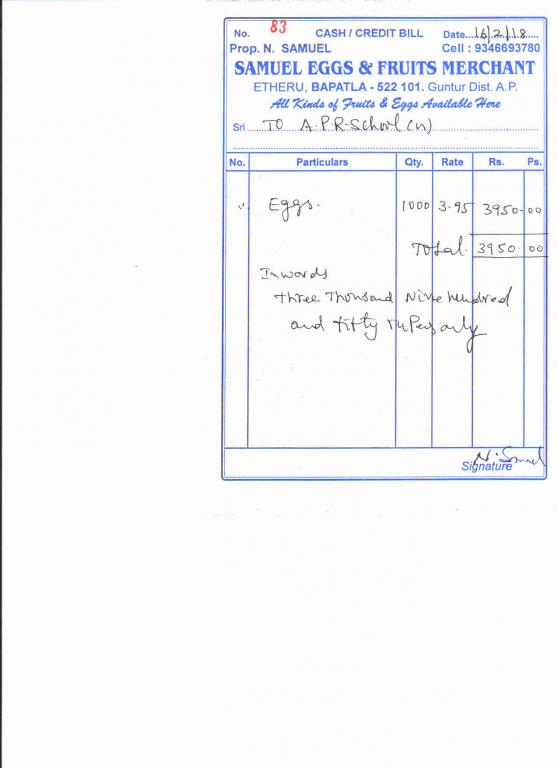 No. 83 CASH / CREDIT BILL Date...16/2/18.....
Prop. N. SAMUEL Cell : 9346693780
SAMUEL EGGS & FRUITS MERCHANT
ETHERU, BAPATLA - 522 101. Guntur Dist. A.P.
All Kinds of Fruits & Eggs Available Here
Sri.....To A.P.R-School (N)
No. Particulars Qty. Rate Rs. Ps.
Eggs. 1000 3-95 3950-00
Total. 3950. 00
In words
three Thousand Nine hundred
and fifty rupees only
N. Samuel
Signature